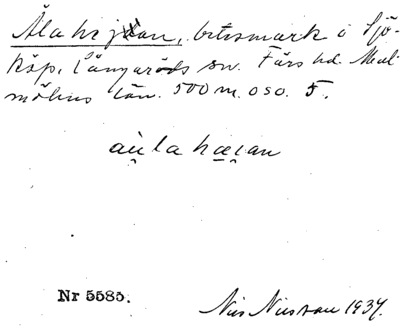 Åla hejan, betesmark i Sjö-
köp, Långaröds sn. Färs hd. Mal-
möhus län. 500 m. oso. 5.
au̯̇la hæi̯an
Nr 5585.
Nils Nilsson 1934.